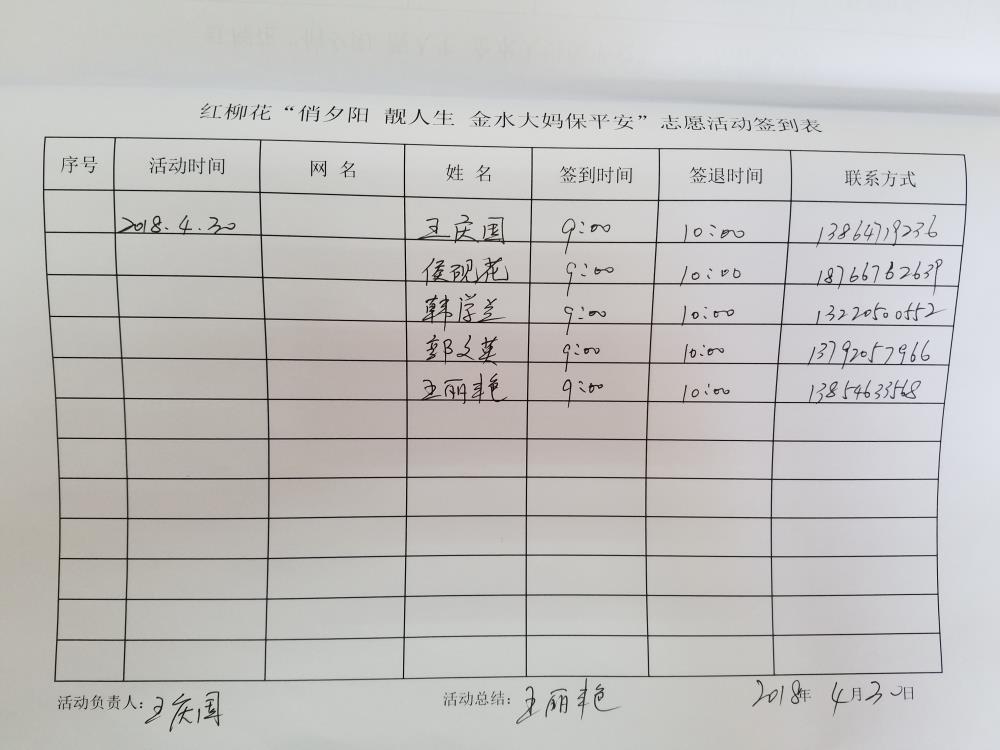 红柳花“俏夕阳 靓人生 金水大妈保平安”志愿活动签到表
序号 活动时间 网 名 姓 名 签到时间 签退时间 联系方式
2018.4.30 王庆国 9:00 10:00 13864719236
侯砚花 9:00 10:00 18766762639
韩学兰 9:00 10:00 13220500552
郭文英 9:00 10:00 13792057966
王丽艳 9:00 10:00 13854633568
活动负责人:王庆国 活动总结:王丽艳 2018年 4月30日